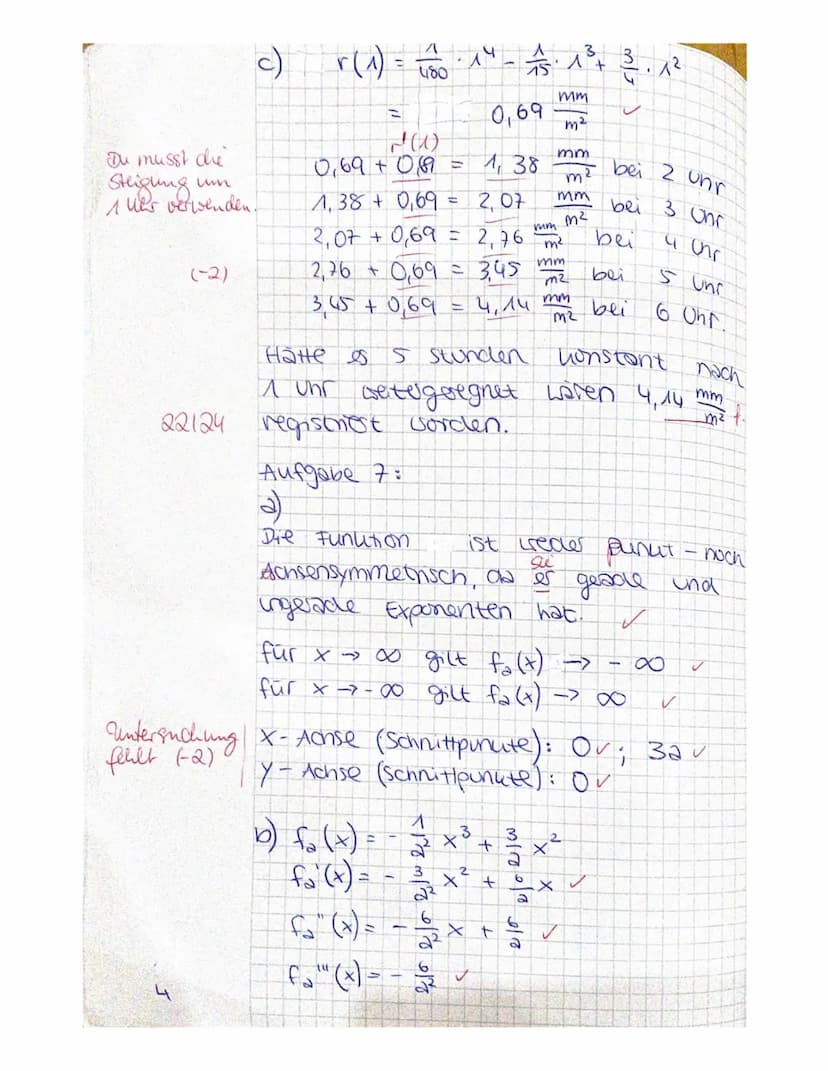 c) r(1) = 1/480 · 1⁴ - 1/15 · 1³ + 3/4 · 1²
= 0,69 mm/m² ✓
r'(1)
Du musst die
Steigung um
1 Uhr verwenden.
0,69 + 0,69 = 1,38 mm/m² bei 2 Uhr
1,38 + 0,69 = 2,07 mm/m² bei 3 Uhr
2,07 + 0,69 = 2,76 mm/m² bei 4 Uhr
(-2)
2,76 + 0,69 = 3,45 mm/m² bei 5 Uhr
3,45 + 0,69 = 4,14 mm/m² bei 6 Uhr.
Hätte es 5 Stunden konstant nach
1 Uhr weitergeregnet wären 4,14 mm/m² f.
22/24
registriert worden.
Aufgabe 7:
a)
Die Funktion ist weder punkt- noch
sie
Achsensymmetrisch, da er gerade und
ungerade Exponenten hat. ✓
für x → ∞ gilt fₐ(x) → - ∞ ✓
für x → - ∞ gilt fₐ(x) → ∞ ✓
Untersuchung
fehlt (-2)
X- Achse (Schnittpunkte): 0 ✓; 3a ✓
Y- Achse (Schnittpunkte): 0 ✓
b) fₐ(x) = - 1/a² x³ + 3/a x²
fₐ'(x) = - 3/a² x² + 6/a x ✓
fₐ''(x) = - 6/a² x + 6/a ✓
fₐ'''(x) = - 6/a² ✓
4